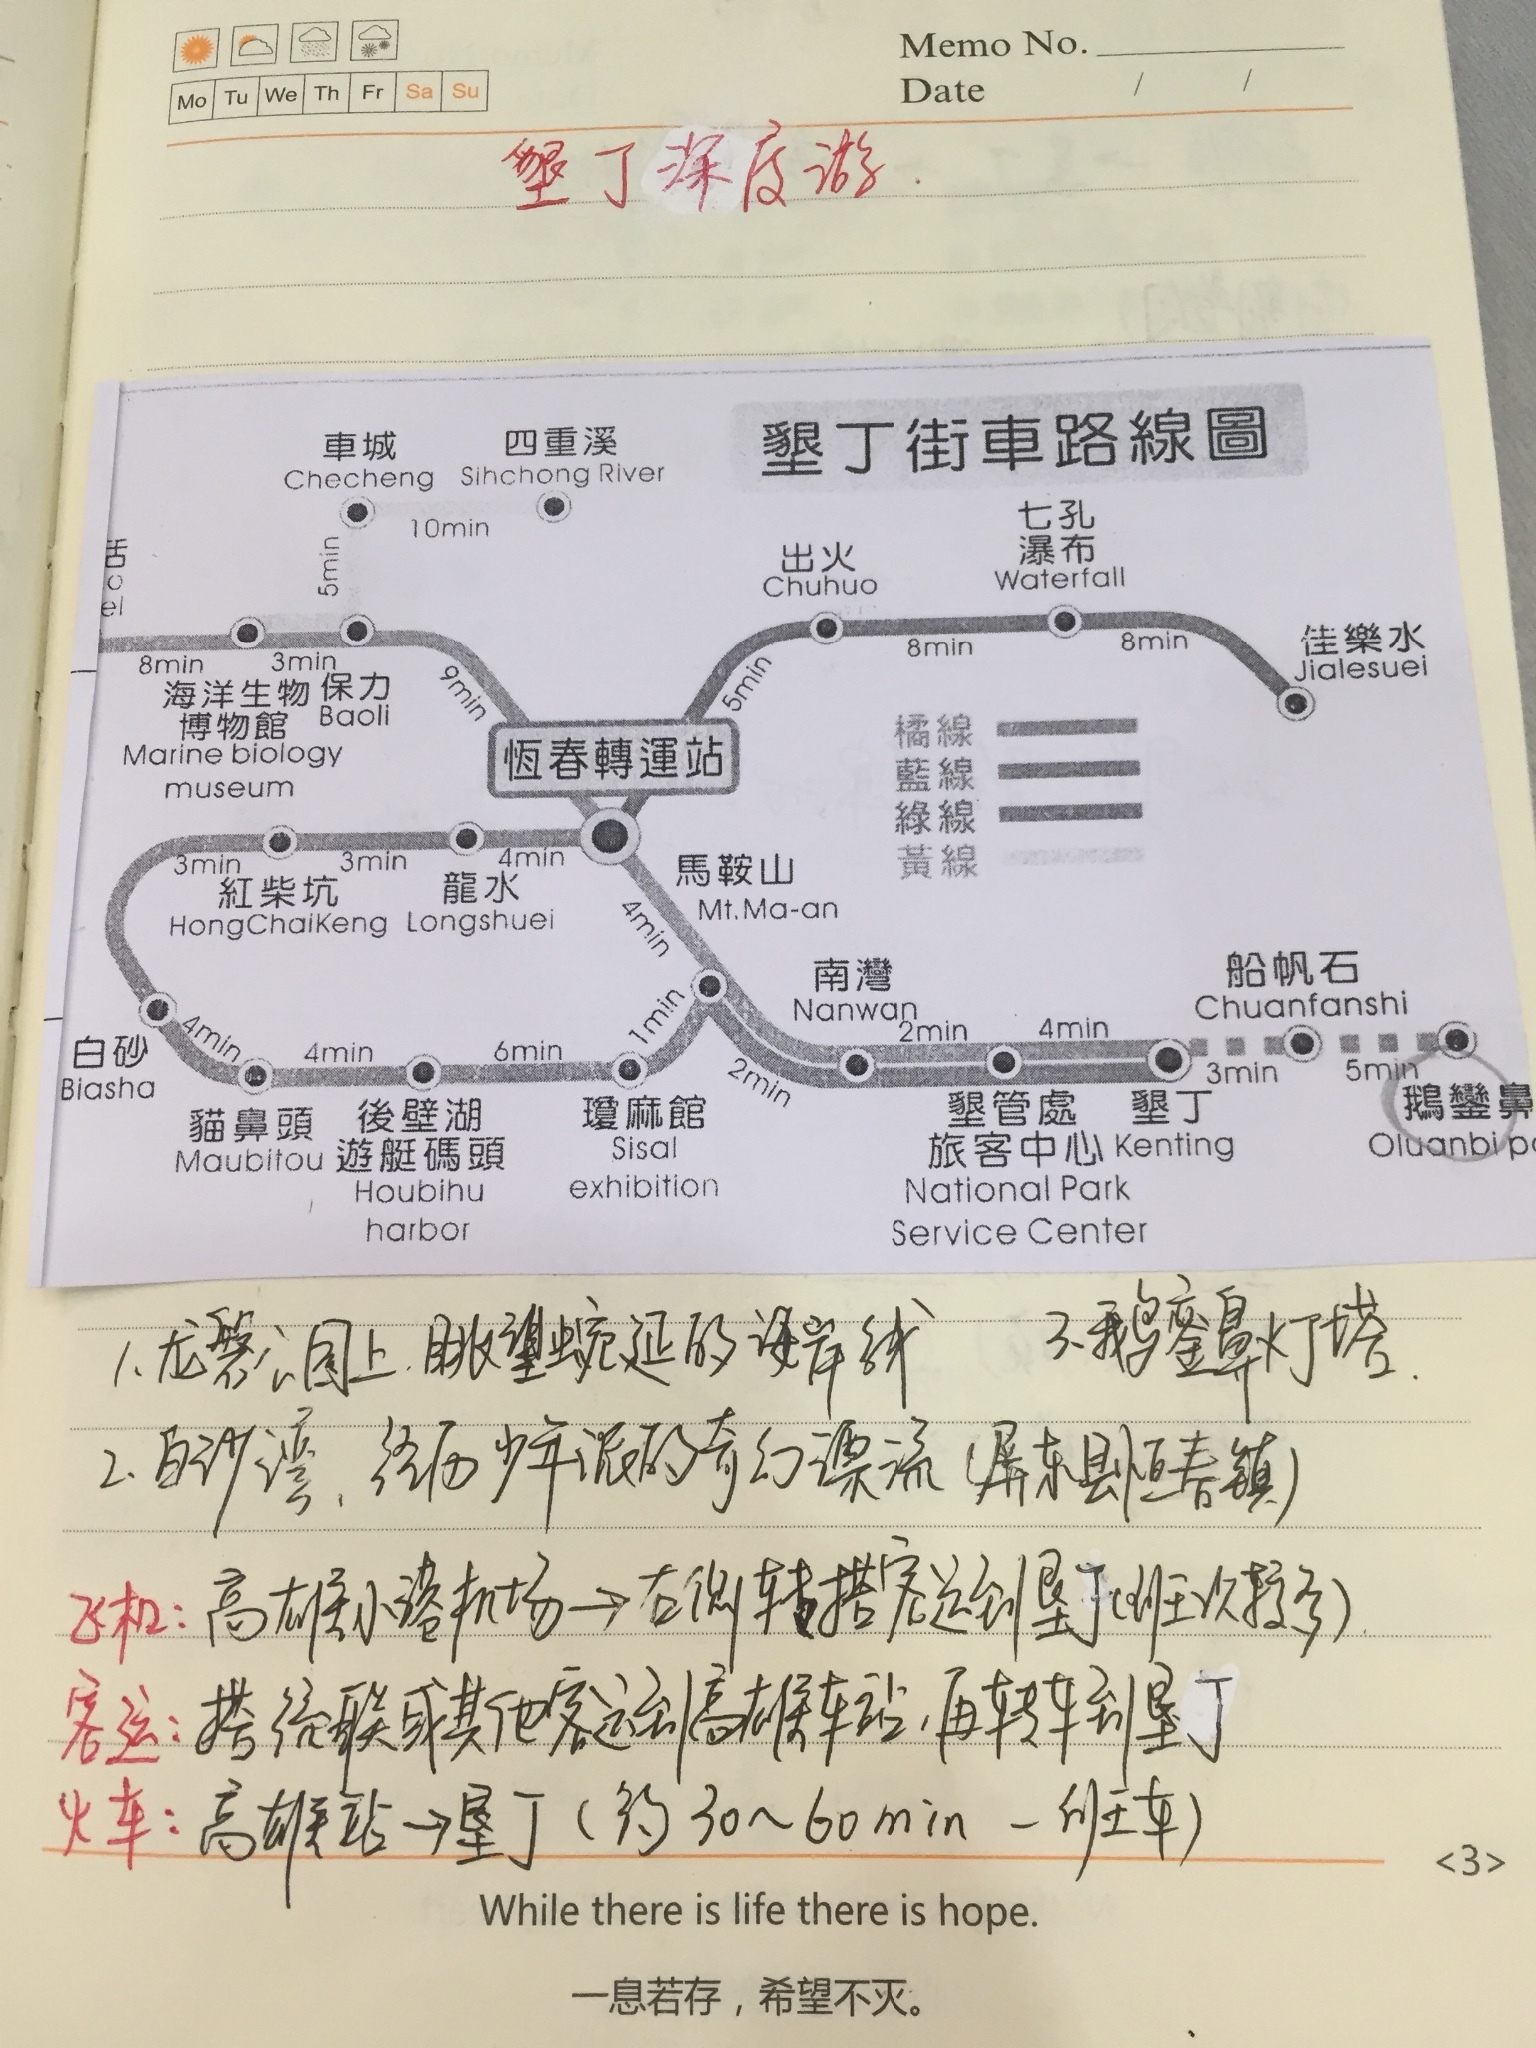 Memo No.
Mo Tu We Th Fr Sa Su
Date / /
墾丁深度游.
墾丁街車路線圖
車城
Checheng
四重溪
Sihchong River
10min
5min
出火
Chuhuo
七孔
瀑布
Waterfall
佳樂水
Jialesuei
8min
8min
5min
el
8min
3min
海洋生物
博物館
Marine biology
museum
保力
Baoli
9min
恆春轉運站
橘線
藍線
綠線
黃線
3min
3min
4min
紅柴坑
HongChaiKeng
龍水
Longshuei
馬鞍山
Mt.Ma-an
4min
白砂
Biasha
4min
4min
6min
1min
2min
南灣
Nanwan
2min
4min
船帆石
Chuanfanshi
3min
5min
貓鼻頭
Maubitou
後壁湖
遊艇碼頭
Houbihu
harbor
瓊麻館
Sisal
exhibition
墾管處
旅客中心
National Park
Service Center
墾丁
Kenting
鵝鑾鼻
Oluanbi
1.龙磐公园上.眺望蜿延的海岸线 3.鹅銮鼻灯塔.
2.白沙湾、经历少年派的奇幻漂流(屏东县恒春镇)
飞机:高雄小港机场→右侧转搭客运到垦丁(班次较多).
客运:搭统联或其他客运到高雄车站,再转车到垦丁
火车:高雄站→垦丁(约30~60min一班车)
<3>
While there is life there is hope.
一息若存，希望不灭。